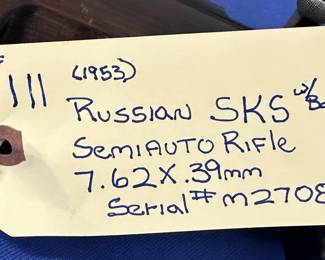 111
(1953)
Russian SKS w/
SemiAuto Rifle
7.62 X .39mm
Serial # M2708